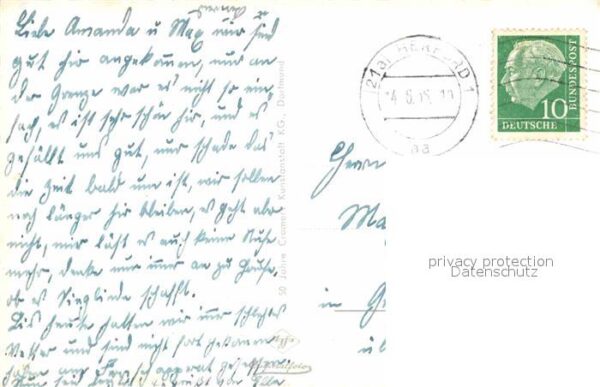 Liebe Amanda u Max wir sind
gut hir angekommen, nur an
der Grenze war es nicht so ein-
fach, es ist sehr schön hir, und es
gefällt uns gut, nur schade das
die Zeit bald um ist, wir sollen
noch länger hir bleiben, es geht aber
nicht, mir läst es auch keine Ruhe
mehr, denke nur immer an zu Hause,
ob es Sieglinde schafft.
Bis heute hatten wir imer schlechtes
Wetter und sind nicht fort gekommen
50 Jahre Cramers Kunstanstalt KG., Dortmund
(21a) HERFORD 1
aa
10
DEUTSCHE
BUNDESPOST
Herrn
Ma
in Ge
privacy protection
Datenschutz